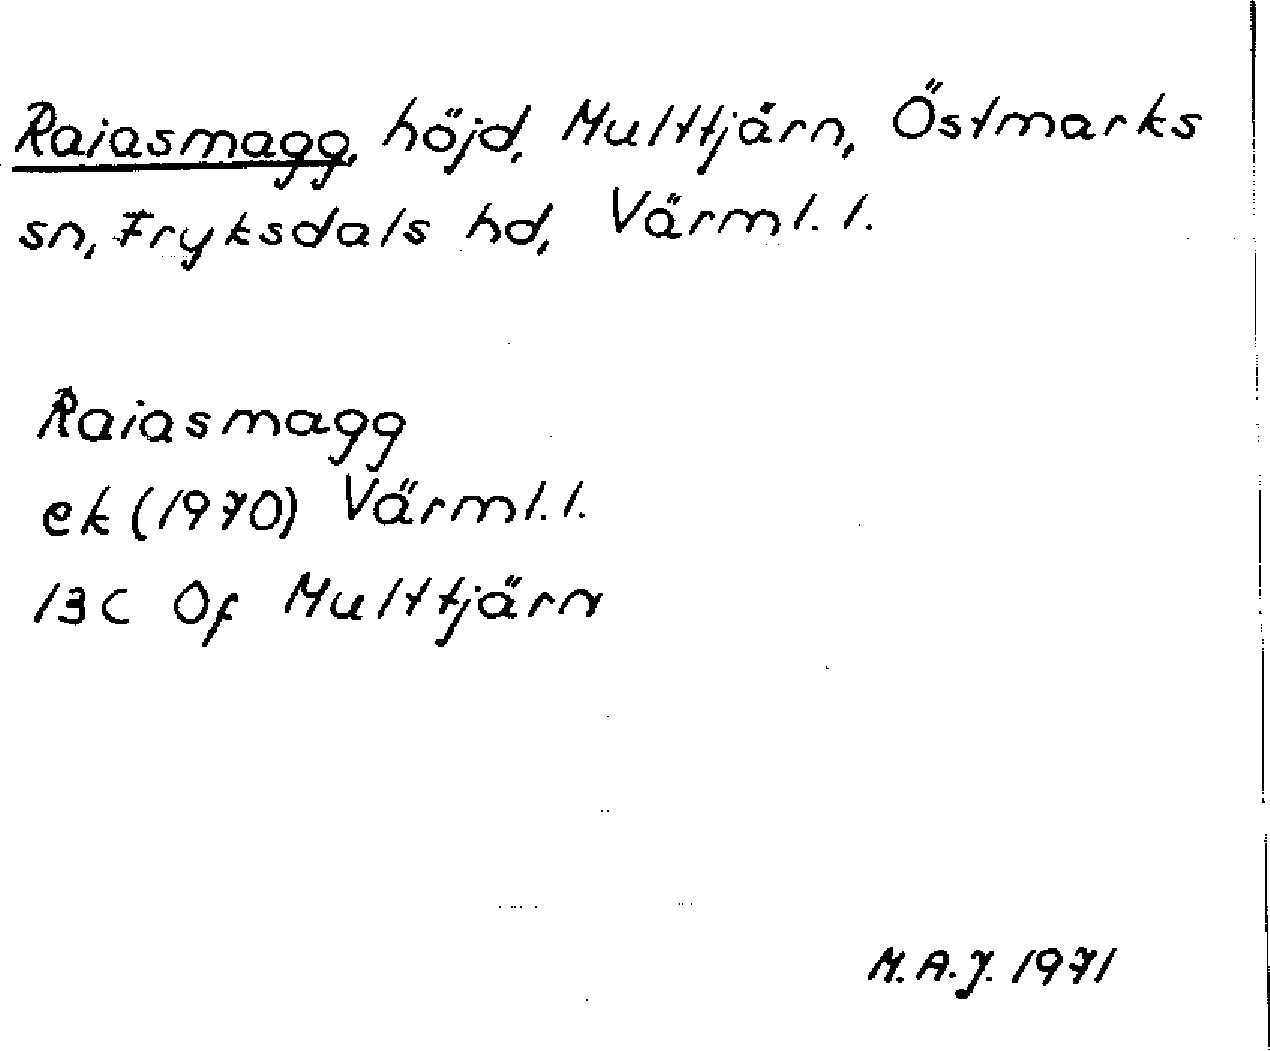 Raiasmagg, höjd, Multtjärn, Östmarks
sn, Fryksdals hd, Värml. l.
Raiasmagg
ek (1970) Värml. l.
13C Of Multtjärn
M.A.J. 1971